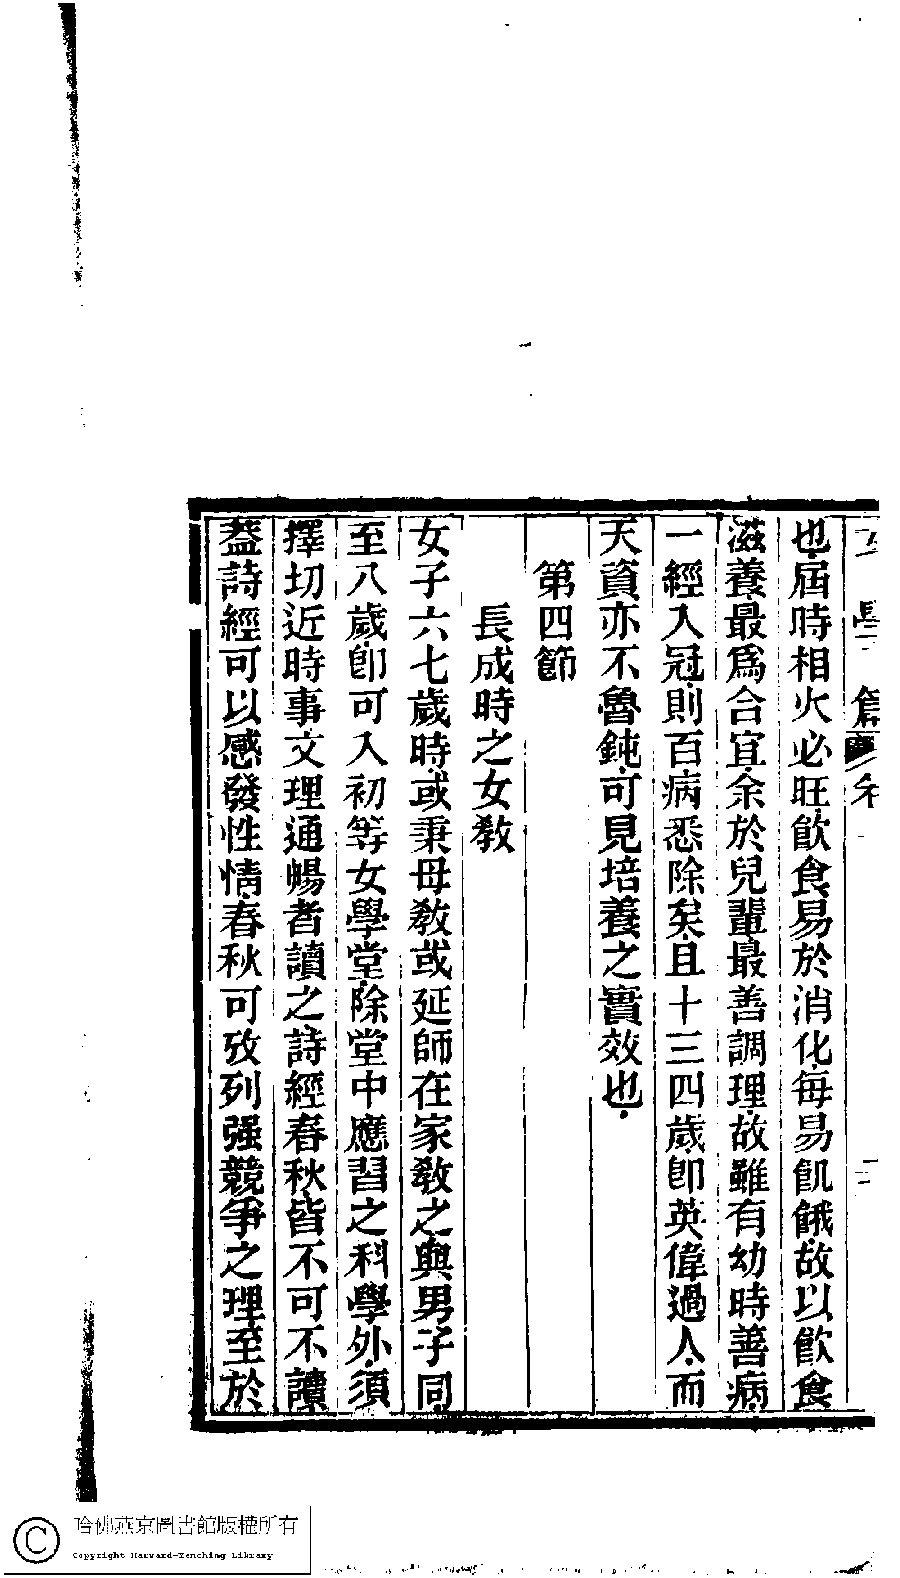 也屆時相火必旺飮食易於消化每易飢餓故以飮食
滋養最爲合宜余於兒輩最善調理故雖有幼時善病
一經入冠則百病悉除矣且十三四歲卽英偉過人而
天資亦不魯鈍可見培養之實效也
第四節
長成時之女敎
女子六七歲時或秉母敎或延師在家敎之與男子同
至八歲卽可入初等女學堂除堂中應習之科學外須
擇切近時事文理通暢者讀之詩經春秋皆不可不讀
葢詩經可以感發性情春秋可攷列强競爭之理至於
哈佛燕京圖書館版權所有
Copyright Harvard-Yenching Library